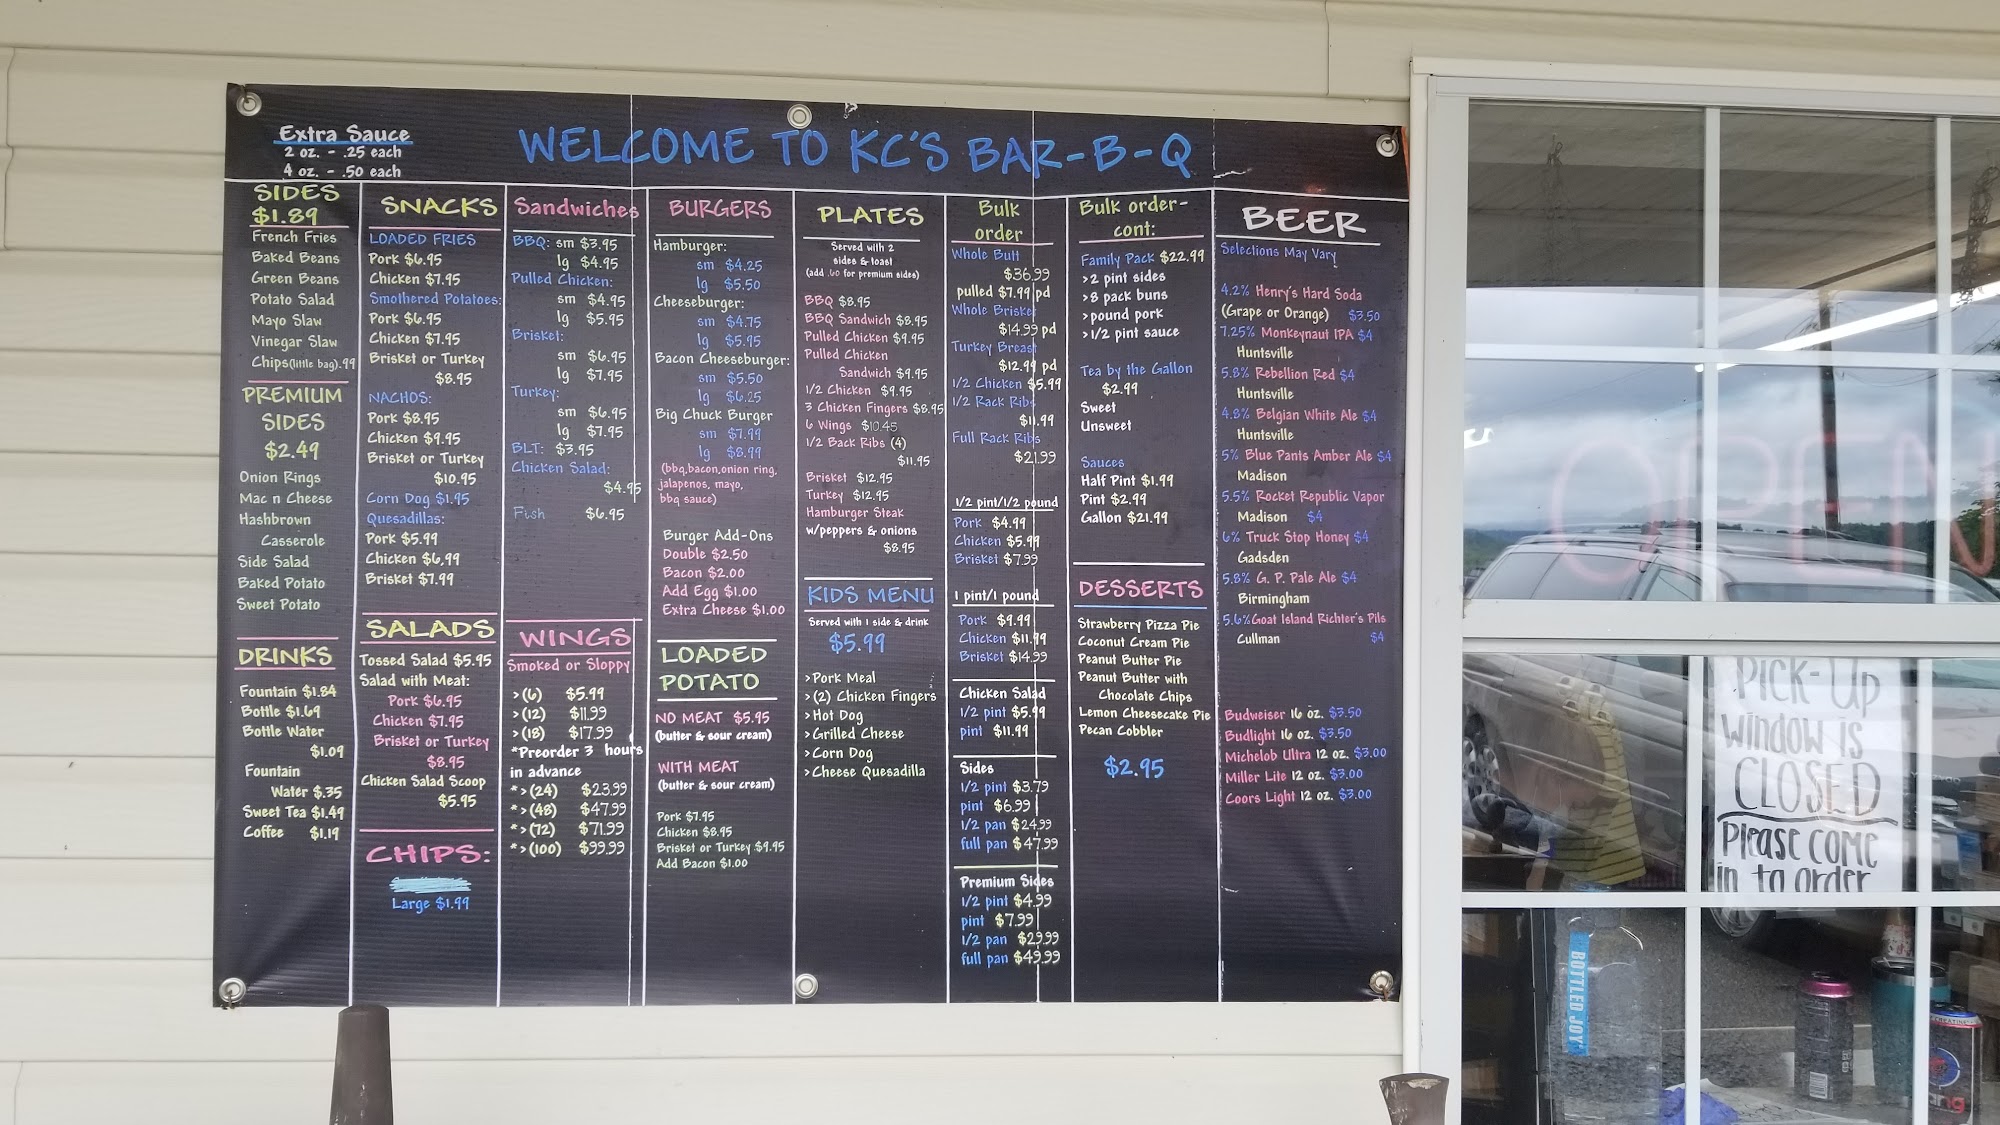 Extra Sauce
2 oz. - .25 each
4 oz. - .50 each
WELCOME TO KC'S BAR-B-Q
SIDES
$1.89
French Fries
Baked Beans
Green Beans
Potato Salad
Mayo Slaw
Vinegar Slaw
Chips(little bag).99
PREMIUM
SIDES
$2.49
Onion Rings
Mac n Cheese
Hashbrown
Casserole
Side Salad
Baked Potato
Sweet Potato
DRINKS
Fountain $1.84
Bottle $1.69
Bottle Water
$1.09
Fountain
Water $.35
Sweet Tea $1.49
Coffee $1.19
SNACKS
LOADED FRIES
Pork $6.95
Chicken $7.95
Smothered Potatoes:
Pork $6.95
Chicken $7.95
Brisket or Turkey
$8.95
NACHOS:
Pork $8.95
Chicken $9.95
Brisket or Turkey
$10.95
Corn Dog $1.95
Quesadillas:
Pork $5.99
Chicken $6.99
Brisket $7.99
SALADS
Tossed Salad $5.95
Salad with Meat:
Pork $6.95
Chicken $7.95
Brisket or Turkey
$8.95
Chicken Salad Scoop
$5.95
CHIPS:
Large $1.99
Sandwiches
BBQ: sm $3.95
lg $4.95
Pulled Chicken:
sm $4.95
lg $5.95
Brisket:
sm $6.95
lg $7.95
Turkey:
sm $6.95
lg $7.95
BLT: $3.95
Chicken Salad:
$4.95
Fish $6.95
WINGS
Smoked or Sloppy
>(6) $5.99
>(12) $11.99
>(18) $17.99
*Preorder 3 hours
in advance
*>(24) $23.99
*>(48) $47.99
*>(72) $71.99
*>(100) $99.99
BURGERS
Hamburger:
sm $4.25
lg $5.50
Cheeseburger:
sm $4.75
lg $5.95
Bacon Cheeseburger:
sm $5.50
lg $6.25
Big Chuck Burger
sm $7.99
lg $8.99
(bbq,bacon,onion ring,
jalapenos, mayo,
bbq sauce)
Burger Add-Ons
Double $2.50
Bacon $2.00
Add Egg $1.00
Extra Cheese $1.00
LOADED
POTATO
NO MEAT $5.95
(butter & sour cream)
WITH MEAT
(butter & sour cream)
Pork $7.95
Chicken $8.95
Brisket or Turkey $9.95
Add Bacon $1.00
PLATES
Served with 2
sides & toast
(add .60 for premium sides)
BBQ $8.95
BBQ Sandwich $8.95
Pulled Chicken $9.95
Pulled Chicken
Sandwich $9.95
1/2 Chicken $9.95
3 Chicken Fingers $8.95
6 Wings $10.45
1/2 Back Ribs (4)
$11.95
Brisket $12.95
Turkey $12.95
Hamburger Steak
w/peppers & onions
$8.95
KIDS MENU
Served with 1 side & drink
$5.99
>Pork Meal
>(2) Chicken Fingers
>Hot Dog
>Grilled Cheese
>Corn Dog
>Cheese Quesadilla
Bulk
order
Whole Butt
$36.99
pulled $7.99 pd
Whole Brisket
$14.99 pd
Turkey Breast
$12.99 pd
1/2 Chicken $5.99
1/2 Rack Ribs
$11.99
Full Rack Ribs
$21.99
1/2 pint/1/2 pound
Pork $4.99
Chicken $5.99
Brisket $7.99
1 pint/1 pound
Pork $9.99
Chicken $11.99
Brisket $14.99
Chicken Salad
1/2 pint $5.99
pint $11.99
Sides
1/2 pint $3.79
pint $6.99
1/2 pan $24.99
full pan $47.99
Premium Sides
1/2 pint $4.99
pint $7.99
1/2 pan $29.99
full pan $49.99
Bulk order-
cont:
Family Pack $22.99
>2 pint sides
>8 pack buns
>pound pork
>1/2 pint sauce
Tea by the Gallon
$2.99
Sweet
Unsweet
Sauces
Half Pint $1.99
Pint $2.99
Gallon $21.99
DESSERTS
Strawberry Pizza Pie
Coconut Cream Pie
Peanut Butter Pie
Peanut Butter with
Chocolate Chips
Lemon Cheesecake Pie
Pecan Cobbler
$2.95
BEER
Selections May Vary
4.2% Henry's Hard Soda
(Grape or Orange) $3.50
7.25% Monkeynaut IPA $4
Huntsville
5.8% Rebellion Red $4
Huntsville
4.8% Belgian White Ale $4
Huntsville
5% Blue Pants Amber Ale $4
Madison
5.5% Rocket Republic Vapor
Madison $4
6% Truck Stop Honey $4
Gadsden
5.8% G. P. Pale Ale $4
Birmingham
5.6%Goat Island Richter's Pils
Cullman $4
Budweiser 16 oz. $3.50
Budlight 16 oz. $3.50
Michelob Ultra 12 oz. $3.00
Miller Lite 12 oz. $3.00
Coors Light 12 oz. $3.00
OPEN
Pick-Up
window is
CLOSED
Please come
in to order
BOTTLED JOY